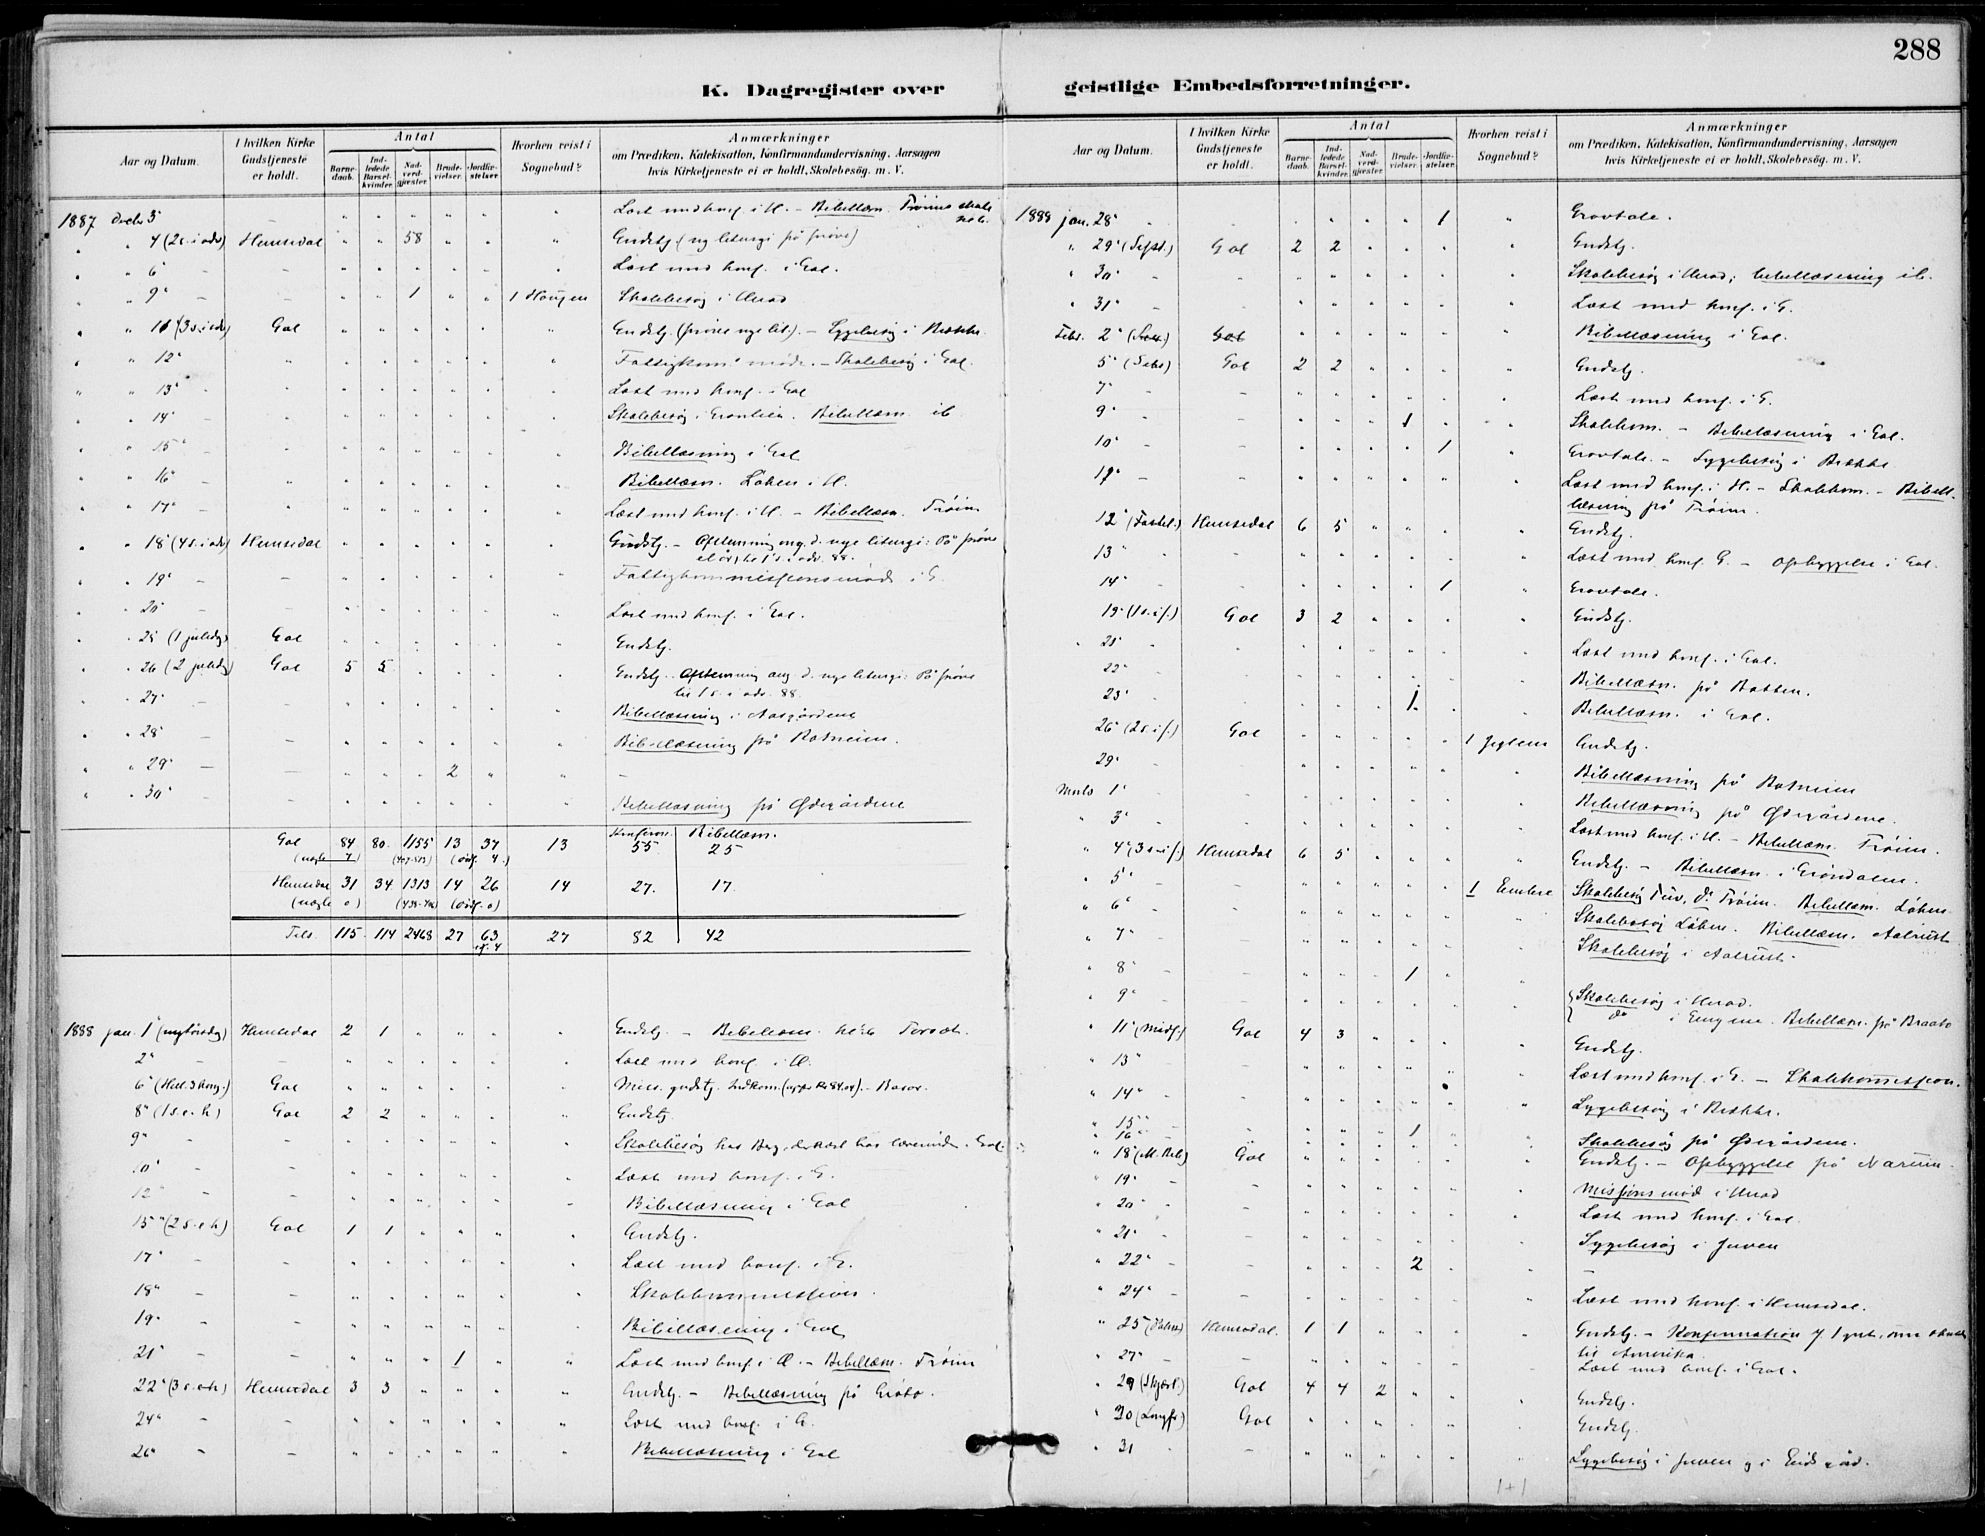 288
K. Dagregister over geistlige Embedsforretninger.
Aar og Datum. | I hvilken Kirke Gudstjeneste er holdt. | Antal | Barnedaab. | Indledede Barselkvinder. | Nadverdgjæster. | Brudevielser. | Jordfæstelser. | Hvorhen reist i Sognebud? | Anmærkninger om Prædiken, Katekisation, Konfirmandundervisning, Aarsagen hvis Kirketjeneste ei er holdt, Skolebesøg. m. V.
1887 Decbr 3 Læst med konf. i H. – Bibellæsn. Trøim skole
" " 4 (2 s. i adv) Hemsedal " " 58 " " " Gudstj. (ny liturgi på prøve)
" " 6 Læst med konf. i Gol.
" " 9 1 1 Haugen Skolebesøg i Ulsad
" " 11 (3 s. i adv) Gol Gudstj. – Sygebesøg i Bække.
" " 12 Fattigkom. møde. – Skolebesøg i Gol.
" " 13 Læst med konf. i Gol
" " 14 Skolebesøg i Grønlien. Bibellæsn. ib
" " 15 Bibellæsning i Gol
" " 16 Bibellæsn. Løken i H.
" " 17 Læst med konf. i H. – Bibellæsn. Trøim
" " 18 (4 s. i adv) Hemsedal Gudstj. – Afstemning ang. d. nye liturgi: På prøve
et år, til 1 s. i adv. 88.
" " 19 Fattigkommissionsmøde i G.
" " 20 Læst med konf. i Gol.
" " 25 (1 juledg) Gol Gudstj.
" " 26 (2 juledg) Gol 5 5 Gudstj. Afstemning ang. d. nye liturgi: På prøve
til 1 s. i adv. 88.
" " 27 Bibellæsning i Aasgårdene
" " 28 Bibellæsning på Rotneim.
" " 29 2 –
" " 30 Bibellæsning på Ødegårdene
Gol 84 80 1155 13 37 13 Konfirm. 55 Bibellæsn. 25
Hemsedal 31 34 1313 14 26 14 27. 17.
Tils. 115 114 2468 27 63 27 82 42
1888 jan. 1 (nytårsdg) Hemsedal 2 1 Gudstj. – Bibellæsn.
2 Læst med konf. i H.
6 (Hell. 3 kong.) Gol Miss. gudstj.
8 (1 s. e. h) Gol 2 2 Gudstj.
9 Skolebesøg hos Berg, Gol.
10 Læst med konf. i G.
12 Bibellæsning i Gol
15 (2 s. e. h) Gol 1 1 Gudstj.
17 Læst med konf. i G.
18 Skolekommission.
19 Bibellæsning i Gol
21 1 Læst med konf. i H. – Bibellæsn. Trøim
22 (3 s. e. h) Hemsedal 3 3 Gudstj. – Bibellæsning på
24 Læst med konf. i G.
26 Bibellæsning i Gol
Aar og Datum. | I hvilken Kirke Gudstjeneste er holdt. | Antal | Barnedaab. | Indledede Barselkvinder. | Nadverdgjæster. | Brudevielser. | Jordfæstelser. | Hvorhen reist i Sognebud? | Anmærkninger om Prædiken, Katekisation, Konfirmandundervisning, Aarsagen hvis Kirketjeneste ei er holdt, Skolebesøg. m. V.
1888 jan. 28 1 Gravtale.
" 29 (Sept.) Gol 2 2 Gudstj.
" 30 Skolebesøg i Ulsad; bibellæsning ib.
" 31 Læst med konf. i G.
Febr. 2 Gol Bibellæsning i Gol.
5 (Seks) Gol 2 2 Gudstj.
7 Læst med konf. i G.
9 1 Skolekom. – Bibellæsning i Gol.
10 1 Gravtale. – Sygebesøg i Bække
Læst med konf. i H. – Skolekom. – Bibel-
læsning på Trøim.
12 (Fastel.) Hemsedal 6 5 Gudstj.
13 Læst med konf. G. – Opbyggelse i Gol.
14 1 Gravtale.
19 (1 s. i f.) Gol 3 2 Gudstj.
21 Læst med konf. i Gol.
22 Bibellæsn. på
23 1 Bibellæsn. i Gol.
26 (2 s. i f.) Gol 1 Gudstj.
29 Bibellæsning på Rotneim
Marts 1 Bibellæsning på Ødegårdene.
" 3 Læst med konf. i H. – Bibellæsn. Trøim.
" 4 (3 s. i f.) Hemsedal 6 5 Gudstj. – Bibellæsn. i Grøndalen.
" 5 1 Embre Skolebesøg Tuv, do Trøim. Bibellæsn. Løken
" 6 Skolebesøg Løken. Bibellæsn. Aalrust
" 7 Skolebesøg i Aalrust.
" 8 1
" 9 Skolebesøg i Ulsad.
do i Bibellæsn. på Braato
" 11 (Midf.) Gol 4 3 Gudstj.
" 13 Læst med konf. i G. – Skolekommission.
" 14 Sygebesøg i Bække.
" 15
" 16 1 Skolebesøg på Ødegårdene.
" 18 (M. Beb) Gol Gudstj. – Opbyggelse på
" 19 Missionsmøde i Ulsad
" 20 Læst med konf. i Gol
" 21 Sygebesøg i Juven
" 22 2 –
" 24 Læst med konf. i Hemsedal.
" 25 (Palmes) Hemsedal. 1 1 Gudstj. – Konfirmation af 1
til Amerika.
" 27 Læst med konf. i Gol.
" 29 (Skjært.) Gol 4 4 2 Gudstj.
" 30 (Langfr) Gol Gudstj.
" 31 Sygebesøg i Juven og i
1+1